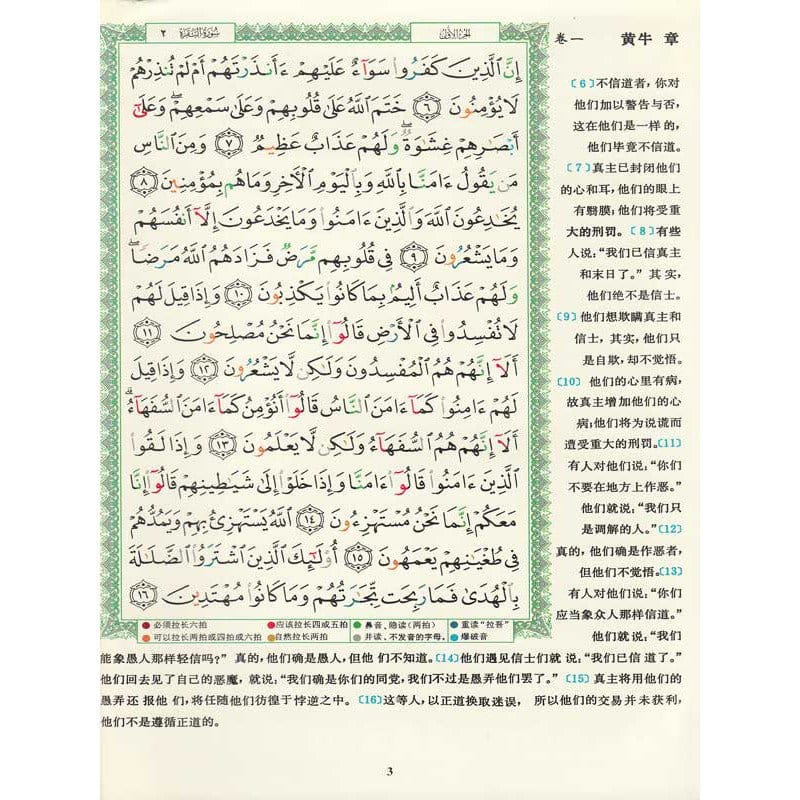 ٢
سورة البقرة
الجزء الأول
卷一 黄牛 章
إِنَّ ٱلَّذِينَ كَفَرُوا۟ سَوَآءٌ عَلَيْهِمْ ءَأَنذَرْتَهُمْ أَمْ لَمْ تُنذِرْهُمْ
لَا يُؤْمِنُونَ ٦ خَتَمَ ٱللَّهُ عَلَىٰ قُلُوبِهِمْ وَعَلَىٰ سَمْعِهِمْ ۖ وَعَلَىٰٓ
أَبْصَٰرِهِمْ غِشَٰوَةٌ ۖ وَلَهُمْ عَذَابٌ عَظِيمٌ ٧ وَمِنَ ٱلنَّاسِ
مَن يَقُولُ ءَامَنَّا بِٱللَّهِ وَبِٱلْيَوْمِ ٱلْءَاخِرِ وَمَا هُم بِمُؤْمِنِينَ ٨
يُخَٰدِعُونَ ٱللَّهَ وَٱلَّذِينَ ءَامَنُوا۟ وَمَا يَخْدَعُونَ إِلَّآ أَنفُسَهُمْ
وَمَا يَشْعُرُونَ ٩ فِى قُلُوبِهِم مَّرَضٌ فَزَادَهُمُ ٱللَّهُ مَرَضًا ۖ
وَلَهُمْ عَذَابٌ أَلِيمٌۢ بِمَا كَانُوا۟ يَكْذِبُونَ ١٠ وَإِذَا قِيلَ لَهُمْ
لَا تُفْسِدُوا۟ فِى ٱلْأَرْضِ قَالُوٓا۟ إِنَّمَا نَحْنُ مُصْلِحُونَ ١١
أَلَآ إِنَّهُمْ هُمُ ٱلْمُفْسِدُونَ وَلَٰكِن لَّا يَشْعُرُونَ ١٢ وَإِذَا قِيلَ
لَهُمْ ءَامِنُوا۟ كَمَآ ءَامَنَ ٱلنَّاسُ قَالُوٓا۟ أَنُؤْمِنُ كَمَآ ءَامَنَ ٱلسُّفَهَآءُ ۗ
أَلَآ إِنَّهُمْ هُمُ ٱلسُّفَهَآءُ وَلَٰكِن لَّا يَعْلَمُونَ ١٣ وَإِذَا لَقُوا۟
ٱلَّذِينَ ءَامَنُوا۟ قَالُوٓا۟ ءَامَنَّا وَإِذَا خَلَوْا۟ إِلَىٰ شَيَٰطِينِهِمْ قَالُوٓا۟ إِنَّا
مَعَكُمْ إِنَّمَا نَحْنُ مُسْتَهْزِءُونَ ١٤ ٱللَّهُ يَسْتَهْزِئُ بِهِمْ وَيَمُدُّهُمْ
فِى طُغْيَٰنِهِمْ يَعْمَهُونَ ١٥ أُو۟لَٰٓئِكَ ٱلَّذِينَ ٱشْتَرَوُا۟ ٱلضَّلَٰلَةَ
بِٱلْهُدَىٰ فَمَا رَبِحَت تِّجَٰرَتُهُمْ وَمَا كَانُوا۟ مُهْتَدِينَ ١٦
必须拉长六拍 应该拉长四或五拍 鼻音、隐读（两拍） 重读“拉吾”
可以拉长两拍或四拍或六拍 自然拉长两拍 并读、不发音的字母。 爆破音
〔6〕不信道者，你对
他们加以警告与否，
这在他们是一样的，
他们毕竟不信道。
〔7〕真主已封闭他们
的心和耳，他们的眼上
有翳膜；他们将受重
大的刑罚。〔8〕有些
人说：“我们已信真主
和末日了。”其实，
他们绝不是信士。
〔9〕他们想欺瞒真主和
信士，其实，他们只
是自欺，却不觉悟。
〔10〕他们的心里有病，
故真主增加他们的心
病；他们将为说谎而
遭受重大的刑罚。〔11〕
有人对他们说：“你们
不要在地方上作恶。”
他们就说：“我们只
是调解的人。”〔12〕
真的，他们确是作恶者，
但他们不觉悟。〔13〕
有人对他们说：“你们
应当象众人那样信道。”
他们就说：“我们
能象愚人那样轻信吗？”真的，他们确是愚人，但他们不知道。〔14〕他们遇见信士们就说：“我们已信道了。”
他们回去见了自己的恶魔，就说：“我们确是你们的同党，我们不过是愚弄他们罢了。”〔15〕真主将用他们的
愚弄还报他们，将任随他们彷徨于悖逆之中。〔16〕这等人，以正道换取迷误，所以他们的交易并未获利，
他们不是遵循正道的。
3